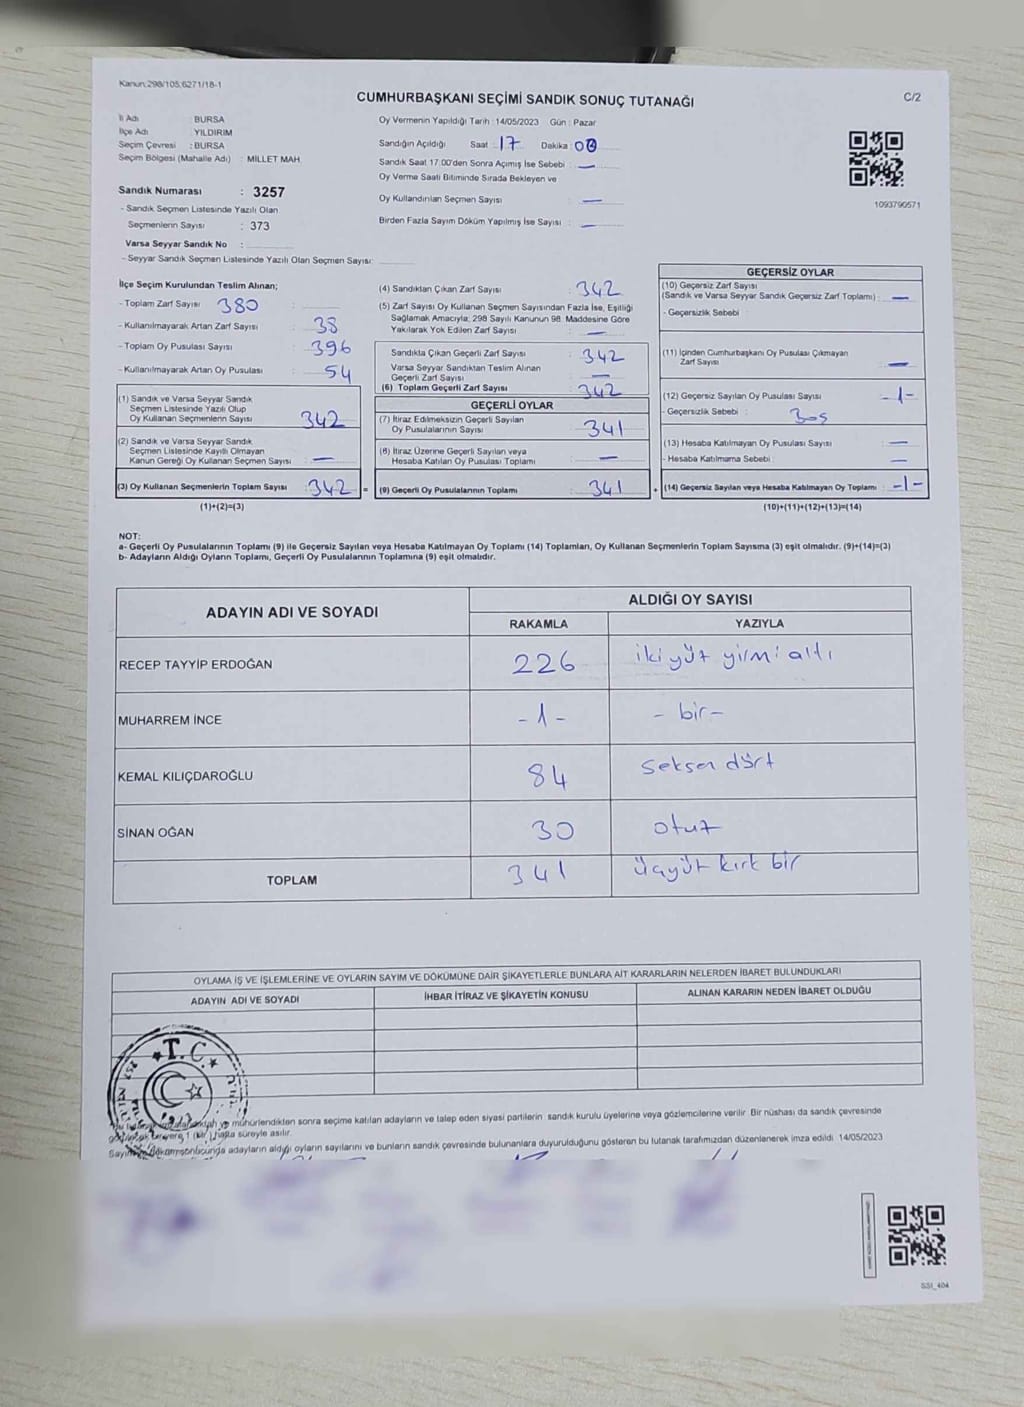 Kanun:298/105,6271/18-1
CUMHURBAŞKANI SEÇİMİ SANDIK SONUÇ TUTANAĞI
C/2
İl Adı : BURSA
İlçe Adı : YILDIRIM
Seçim Çevresi : BURSA
Seçim Bölgesi (Mahalle Adı) : MİLLET MAH.
Oy Vermenin Yapıldığı Tarih : 14/05/2023 Gün : Pazar
Sandığın Açıldığı Saat : 17 Dakika : 00
Sandık Saat 17:00'den Sonra Açımış İse Sebebi : —
Oy Verme Saati Bitiminde Sırada Bekleyen ve
Oy Kullandırılan Seçmen Sayısı : —
Birden Fazla Sayım Döküm Yapılmış İse Sayısı : —
1093790571
Sandık Numarası : 3257
- Sandık Seçmen Listesinde Yazılı Olan
Seçmenlerin Sayısı : 373
Varsa Seyyar Sandık No :
- Seyyar Sandık Seçmen Listesinde Yazılı Olan Seçmen Sayısı:
İlçe Seçim Kurulundan Teslim Alınan;
- Toplam Zarf Sayısı 380 :
- Kullanılmayarak Artan Zarf Sayısı : 38
- Toplam Oy Pusulası Sayısı : 396
- Kullanılmayarak Artan Oy Pusulası : 54
(1) Sandık ve Varsa Seyyar Sandık
Seçmen Listesinde Yazılı Olup
Oy Kullanan Seçmenlerin Sayısı : 342
(2) Sandık ve Varsa Seyyar Sandık
Seçmen Listesinde Kayıtlı Olmayan
Kanun Gereği Oy Kullanan Seçmen Sayısı : —
(3) Oy Kullanan Seçmenlerin Toplam Sayısı : 342
(1)+(2)=(3)
(4) Sandıktan Çıkan Zarf Sayısı : 342
(5) Zarf Sayısı Oy Kullanan Seçmen Sayısından Fazla İse, Eşitliği
Sağlamak Amacıyla; 298 Sayılı Kanunun 98. Maddesine Göre
Yakılarak Yok Edilen Zarf Sayısı : —
Sandıkta Çıkan Geçerli Zarf Sayısı : 342
Varsa Seyyar Sandıktan Teslim Alınan
Geçerli Zarf Sayısı : —
(6) Toplam Geçerli Zarf Sayısı : 342
GEÇERLİ OYLAR
(7) İtiraz Edilmeksizin Geçerli Sayılan
Oy Pusulalarının Sayısı : 341
(8) İtiraz Üzerine Geçerli Sayılan veya
Hesaba Katılan Oy Pusulası Toplamı : —
= (9) Geçerli Oy Pusulalarının Toplamı : 341
GEÇERSİZ OYLAR
(10) Geçersiz Zarf Sayısı
(Sandık ve Varsa Seyyar Sandık Geçersiz Zarf Toplamı) : —
- Geçersizlik Sebebi :
(11) İçinden Cumhurbaşkanı Oy Pusulası Çıkmayan
Zarf Sayısı : —
(12) Geçersiz Sayılan Oy Pusulası Sayısı : -1-
- Geçersizlik Sebebi : Boş
(13) Hesaba Katılmayan Oy Pusulası Sayısı : —
- Hesaba Katılmama Sebebi : —
+ (14) Geçersiz Sayılan veya Hesaba Katılmayan Oy Toplamı : -1-
(10)+(11)+(12)+(13)=(14)
NOT:
a- Geçerli Oy Pusulalarının Toplamı (9) ile Geçersiz Sayılan veya Hesaba Katılmayan Oy Toplamı (14) Toplamları, Oy Kullanan Seçmenlerin Toplam Sayısına (3) eşit olmalıdır. (9)+(14)=(3)
b- Adayların Aldığı Oyların Toplamı, Geçerli Oy Pusulalarının Toplamına (9) eşit olmalıdır.
ADAYIN ADI VE SOYADI
ALDIĞI OY SAYISI
RAKAMLA YAZIYLA
RECEP TAYYİP ERDOĞAN 226 ikiyüz yirmi altı
MUHARREM İNCE -1- - bir -
KEMAL KILIÇDAROĞLU 84 seksen dört
SİNAN OĞAN 30 otuz
TOPLAM 341 üçyüz kırk bir
OYLAMA İŞ VE İŞLEMLERİNE VE OYLARIN SAYIM VE DÖKÜMÜNE DAİR ŞİKAYETLERLE BUNLARA AİT KARARLARIN NELERDEN İBARET BULUNDUKLARI
ADAYIN ADI VE SOYADI İHBAR İTİRAZ VE ŞİKAYETİN KONUSU ALINAN KARARIN NEDEN İBARET OLDUĞU
T.C.
ve mühürlendikten sonra seçime katılan adayların ve talep eden siyasi partilerin sandık kurulu üyelerine veya gözlemcilerine verilir. Bir nüshası da sandık çevresinde
1 (bir) hafta süreyle asılır.
adayların aldığı oyların sayılarını ve bunların sandık çevresinde bulunanlara duyurulduğunu gösteren bu tutanak tarafımızdan düzenlenerek imza edildi. 14/05/2023
SSI_404